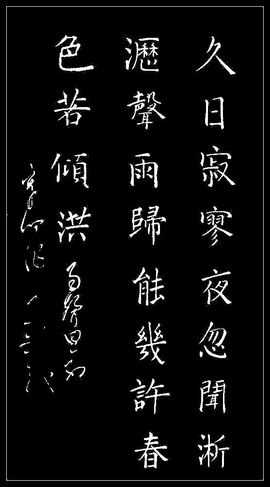 久日寂寥夜忽聞淅
瀝聲雨歸能幾許春
色若傾洪